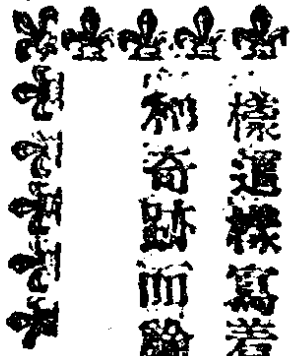 樣還樣寫着
和奇跡而論